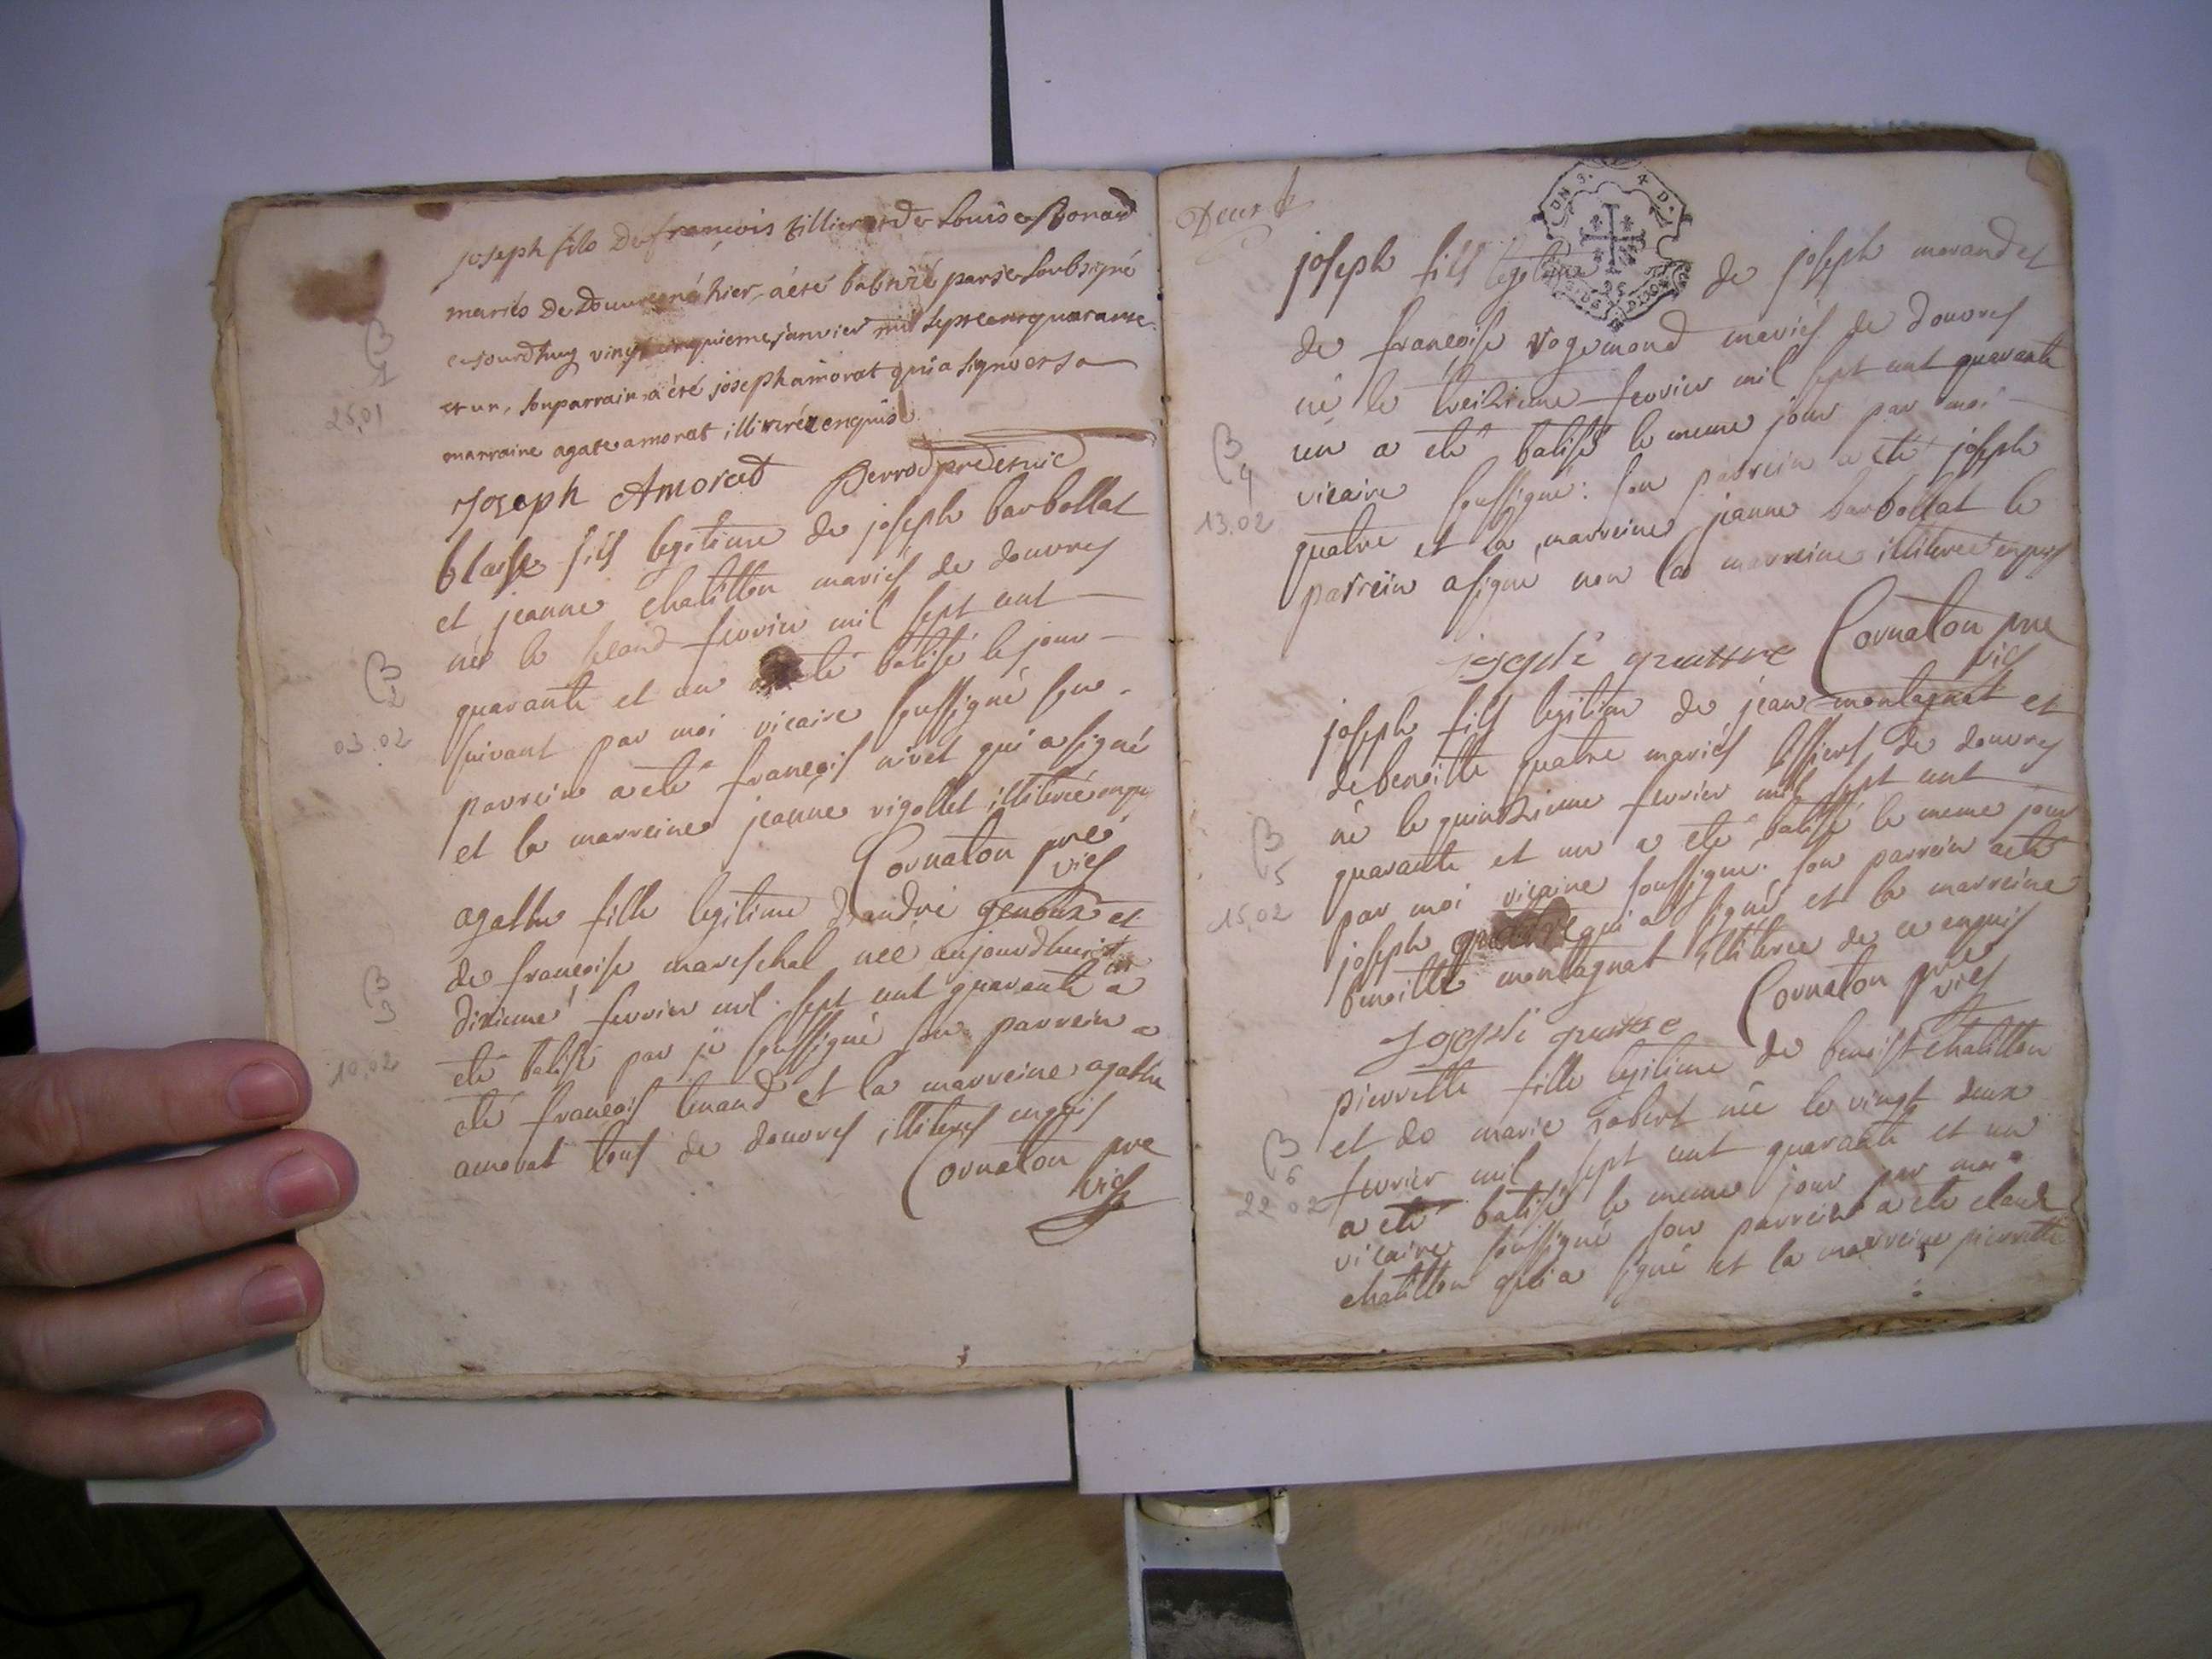 joseph fils De françois tillier et De Louise Bonard
mariés De Douvres né hier, a été batizé par je soubsigné
cejourdhuy vingt cinquieme janvier mil sept cent quarante
et un, son parrain a été joseph amorat qui a signé et sa
marraine agate amorat illitérée enquis
Joseph Amorad Perrod pre desvic
B
1
25,01
blaise fils legitime de joseph barbollat
et jeanne chatillon mariés de douvres
né le second fevrier mil sept cent
quarante et un a eté batisé le jour
suivant par moi vicaire soussigné son
parrein a eté françois nivet qui a signé
et la marreine jeanne rigollet illiterée enqu
Cornaton pre
vic
B
2
03.02
agathe fille legitime d'andré genoux et
de françoise mareschal neé aujourdhuit
dixieme fevrier mil sept cent quarante un a
eté batisé par je soussigné son parrein a
eté françois tenand et la marreine agathe
amorat tous de douvres illiteres enquis
Cornaton pre
vic
B
3
10,02
Deux
joseph fils legitime de joseph morand et
de françoise vogemond mariés de douvres
né le treizieme fevrier mil sept cent quarante
un a eté batisé le meme jour par moi
vicaire soussigné: son parrein a eté joseph
quatre et la marreine jeanne barbollat le
parrein a signé non la marreine illiteree enquis
joseph quattre Cornaton pre
vic
B
4
13.02
joseph fils legitime de jean montagnat et
de benoitte quatre mariés de douvres
né le quinzieme fevrier mil sept cent
quarante et un a eté batisé le meme jour
par moi vicaire soussigné. son parrein a eté
joseph quatre qui a signé et la marreine
benoitte montagnat illiteree de ce enquis
Joseph quatre Cornaton pre
vic
B
5
15,02
pierrette fille legitime de benoist chatillon
et de marie robert née le vingt deux
fevrier mil sept cent quarante et un
a eté batisé le meme jour par moi
vicaire soussigné son parrein a eté claude
chatillon qui a signé et la marreine pierrette
B
6
22 02